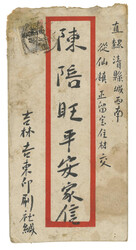 直隸清縣城西南
從仙鎮正留宗佳村交
陳陪旺平安家信
吉林吉東印刷社緘